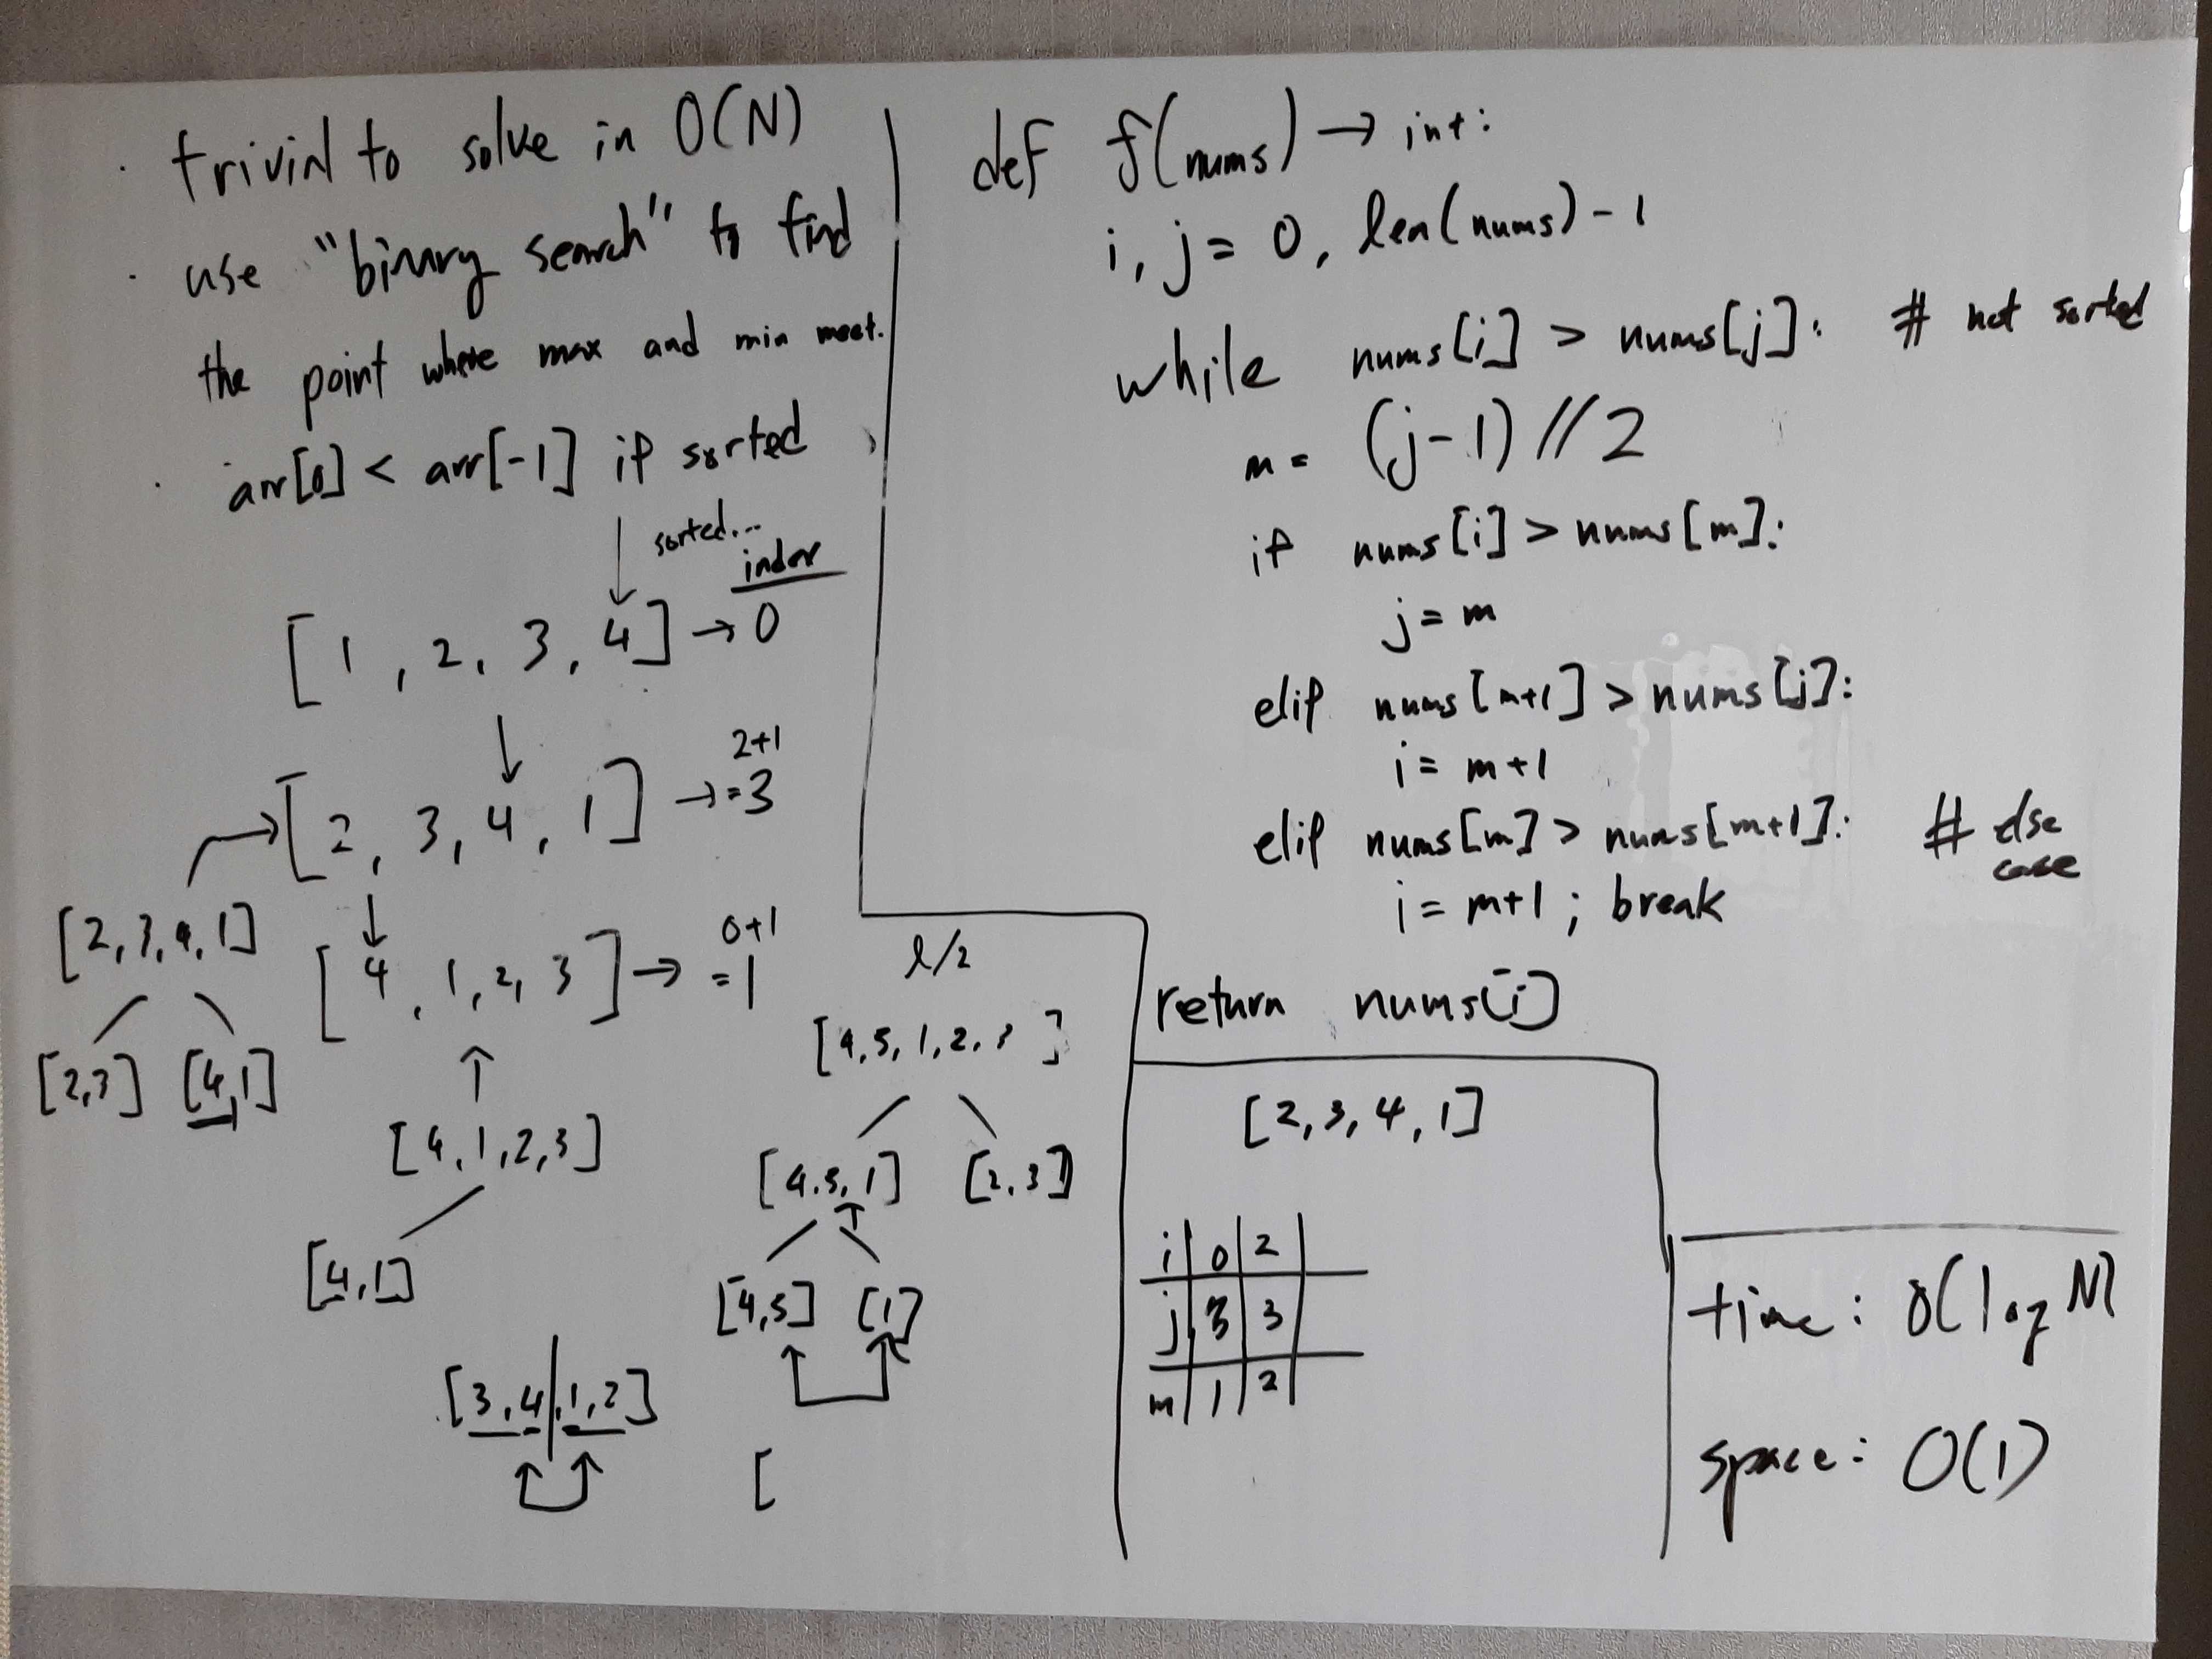 · trivial to solve in O(N)
· use "binary search" to find
the point where max and min meet.
· arr[0] < arr[-1] if sorted
sorted...
index
[1, 2, 3, 4] → 0
2+1
[2, 3, 4, 1] → = 3
[2, 3, 4, 1]
[2,3] [4,1]
0+1
[4, 1, 2, 3] → = 1
[4, 1, 2, 3]
[4, 1]
[3, 4, 1, 2]
l/2
[4, 5, 1, 2, 3]
[4, 5, 1] [2, 3]
[4, 5] [1]
[
def f(nums) → int:
i, j = 0, len(nums) - 1
while nums[i] > nums[j]: # not sorted
m = (j-1)//2
if nums[i] > nums[m]:
j = m
elif nums[m+1] > nums[j]:
i = m+1
elif nums[m] > nums[m+1]: # else
case
i = m+1; break
return nums[i]
[2, 3, 4, 1]
i 0 2
j 3 3
m 1 2
time: O(log N)
space: O(1)